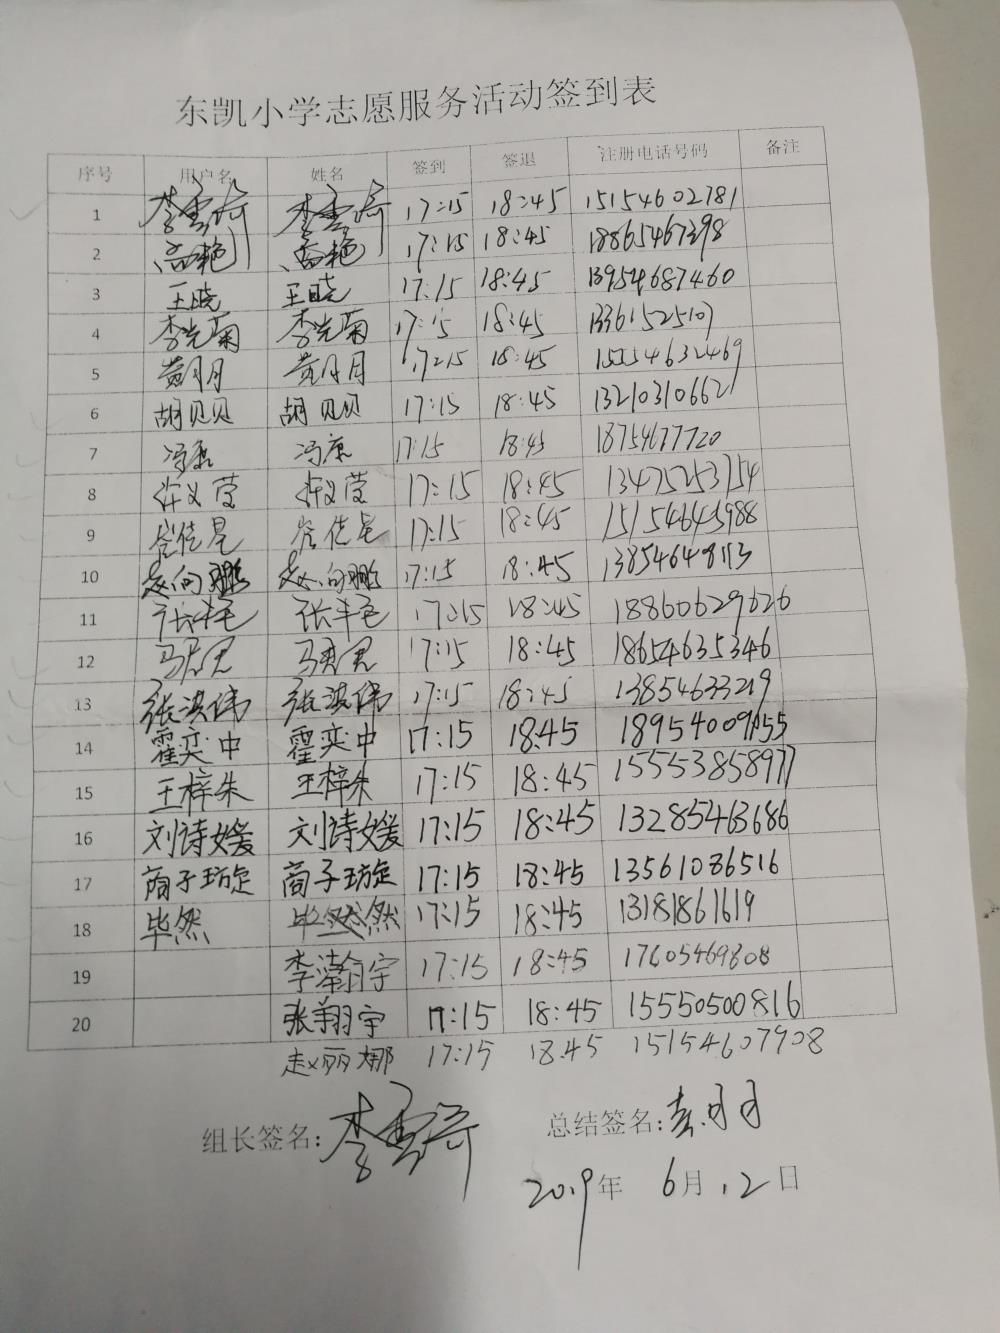 东凯小学志愿服务活动签到表
序号 用户名 姓名 签到 签退 注册电话号码 备注
1 李雪奇 李雪奇 17:15 18:45 15154602781
2 高艳 高艳 17:15 18:45 18865467398
3 王晓 王晓 17:15 18:45 13954687460
4 李光菊 李光菊 17:15 18:45 13361525107
5 黄月月 黄月月 17:15 18:45
6 胡贝贝 胡贝贝 17:15 18:45 13210310662
7 冯康 冯康 17:15 18:45 18754677720
8 许义莹 许义莹 17:15 18:45 13475253754
9 崔佳星 崔佳星 17:15 18:45 15154645988
10 赵向鹏 赵向鹏 17:15 18:45 13854648113
11 张丰毛 张丰毛 17:15 18:45 18860629626
12 17:15 18:45 18654635346
13 张洪伟 张洪伟 17:15 18:45 13854633219
14 霍奕中 霍奕中 17:15 18:45 18954009155
15 王梓朱 王梓朱 17:15 18:45 15553858977
16 刘诗媛 刘诗媛 17:15 18:45 13285463686
17 商子璇 商子璇 17:15 18:45 13561086516
18 毕然 毕然 17:15 18:45 13181861619
19 李瀚宇 17:15 18:45 17605469808
20 张翔宇 17:15 18:45 15550500816
赵丽娜 17:15 18:45 15154607908
组长签名:李雪奇 总结签名:黄月月
2019年 6月12日